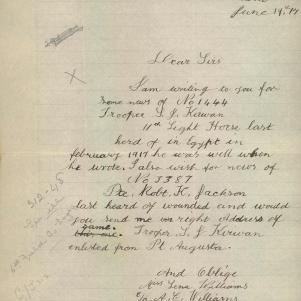 June 19th 17
Dear Sirs
I am writing to you for
some news of No 1444
Trooper L J Kirwan
11th Light Horse last
herd of in Egypt in
february 1917 he was well when
he wrote. I also wish for news of
No 3387
Pte Robt. K. Jackson
last heard of wounded and would
you send me wright address of
same.
Trooper L J Kirwan
enlisted from Pt Augusta.
And Oblige
Miss Lena Williams
C/o A. E. Williams